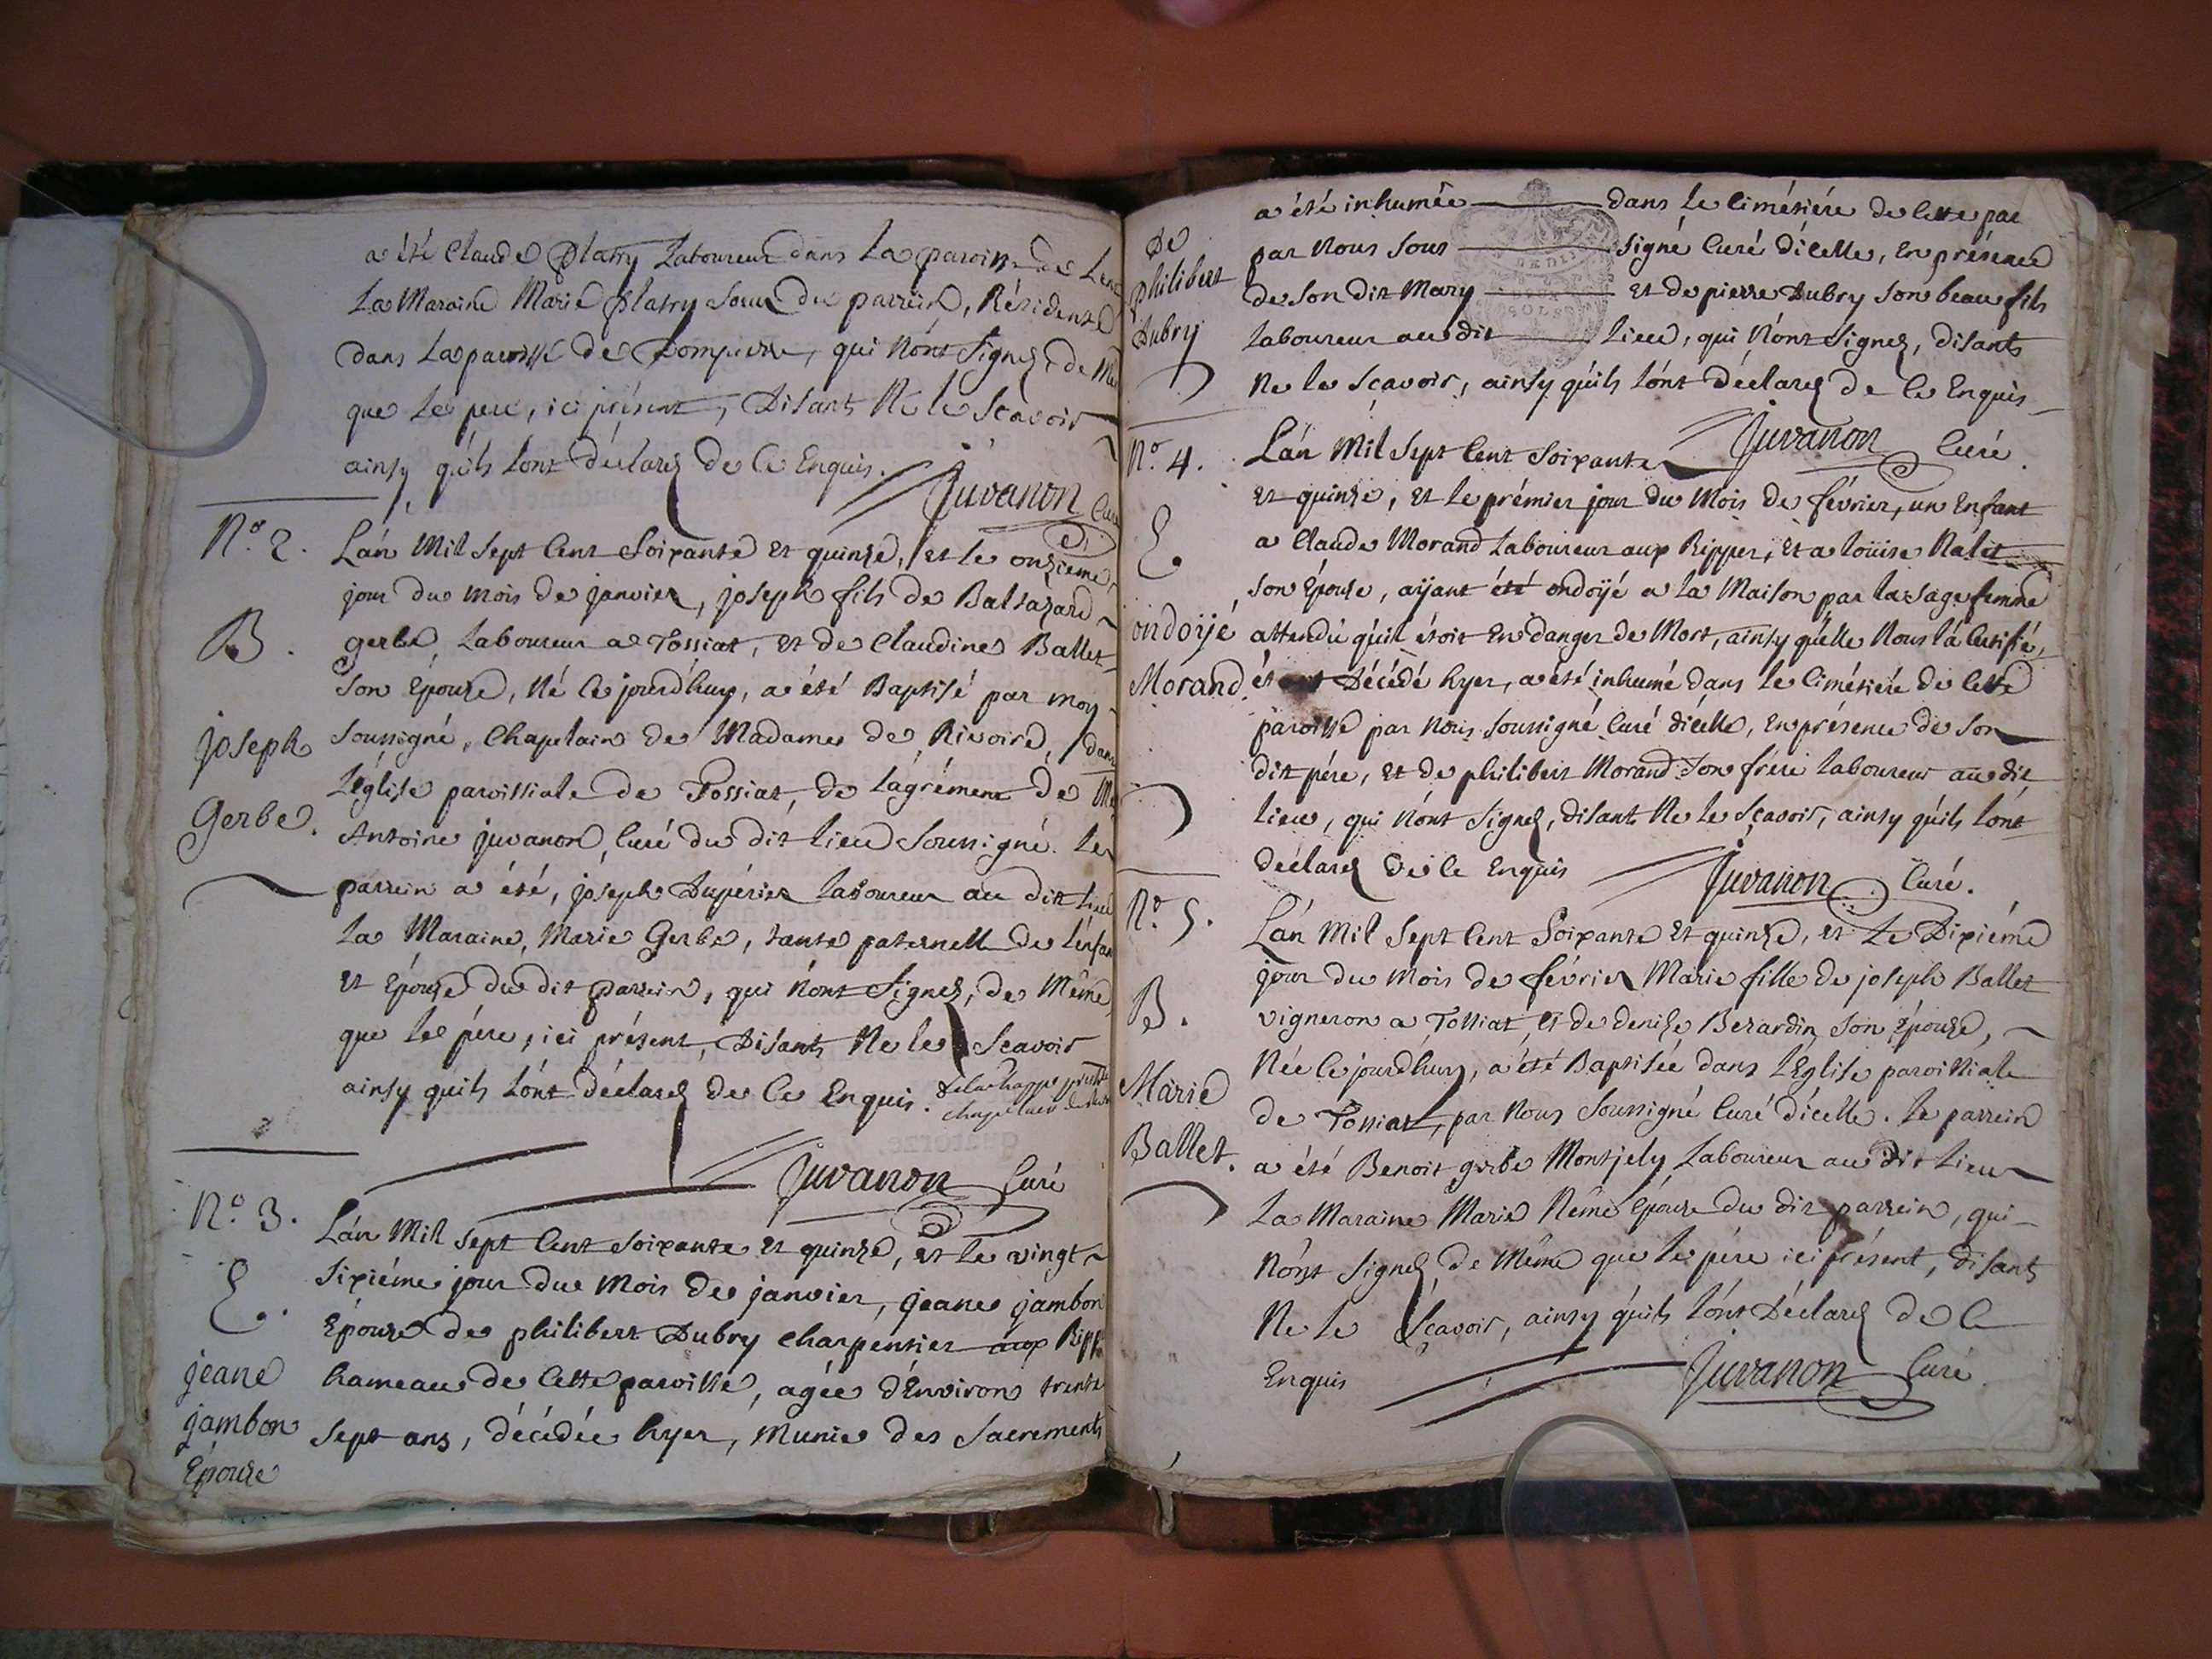 a été Claude Platry Laboureur dans La paroisse de
La Maraine Marie Platry soeur du parrein, Résidente
dans La paroisse de Dompierre, qui n'ónt signez de
que le pere, ici présent, Disants Ne le Scavoir
ainsy qu'ils l'ont déclarez de Ce Enquis.
Juvanon Curé
N.º 2.
B.
joseph
Gerbe.
L'án Mil Sept Cent Soixante et quinze, et le onzieme
jour du mois de janvier, joseph fils de Baltazard
gerbe, Laboureur a Tossiat, et de Claudine Ballet
son Épouze, Né Ce jourd'huy, a été Baptisé par moy
soussigné, Chapelain de Madame de Rivoire, dans
L'église paroissiale de Tossiat, de l'agrément de
Antoine juvanon, Curé du dit Lieu Soussigné. Le
parrein a été, joseph Dupérier laboureur au dit Lieu
La Maraine, Marie Gerbe, tante paternelle de l'énfan
et Épouze du dit parrein, qui n'ónt signez, de Même
que le pére, ici présent, Disants Ne le Scavoir
ainsy qu'ils l'ónt déclarez de Ce Enquis.
chapelain
Juvanon Curé
N.º 3.
E.
jeane
jambon
Épouze
L'án Mil Sept Cent Soixante et quinze, et le vingt
sixiéme jour du Mois de janvier, jeane jambon
Épouze de philibert Dubry Charpentier aux Ripp
hameau de Cette paroisse, agée d'Énviron trente
sept ans, décédée hyer, Munie des Sacrements
De
philibert
Dubry
a été inhumée dans le Cimétiére de Cette par
par Nous Sous signé Curé d'icelle, En présence
de son dit Mary et de pierre Dubry son beau fils
Laboureur au dit Lieu, qui n'ónt signez, disants
Ne le Scavoir, ainsy qu'ils l'ónt déclarez de Ce Enquis
Juvanon Curé.
N.º 4.
E.
ondoijé
Morand
L'án Mil Sept Cent Soixante
et quinze, et le prémier jour du Mois de février, un Enfant
a Claude Morand Laboureur aux Ripper, et a loüise Nalet
son Épouse, aÿant été ondoÿé a la Maison par la sage femme
attendu qu'il étoit En danger de Mort, ainsy qu'elle Nous l'a Certifié,
Décédé hyer, a été inhumé dans le Cimétiére de Cette
paroisse par Nous Soussigné Curé d'icelle, En présence de son
dit pére, et de philibert Morand son frére laboureur au dit
lieu, qui n'ónt signez, disants Ne le Scavoir, ainsy qu'ils l'ónt
déclarez de Ce Enquis
Juvanon Curé.
N.º 5.
B.
Marie
Ballet.
L'án Mil Sept Cent Soixante Et quinze, et Le Dixiéme
jour du Mois de février Marie fille de joseph Ballet
vigneron a Tossiat, et de denize Berardin son Épouze,
Née Ce jourd'huy, a été Baptisée dans l'Eglise paroissiale
de Tossiat, par Nous Soussigné Curé d'icelle. Le parrein
a été Benoit gerbe Montjely Laboureur au dit Lieu
La Maraine Marie Néme Épouze du dit parrein, qui
n'ónt signez, de Même que le pére ici présent, disants
Ne le Sçavoir, ainsy qu'ils l'ónt Déclarez de Ce
Enquis
Juvanon Curé